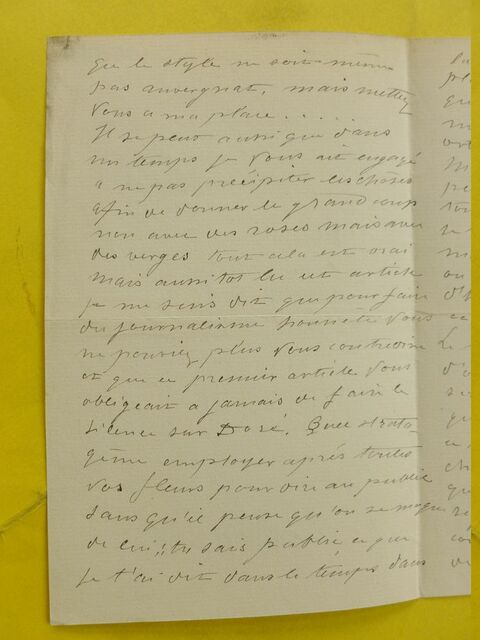 que le style ne soit même
pas auvergnat, mais mettez
vous a ma place.....
Il se peut aussi que dans
un temps je vous ait engagé
a ne pas précipiter les choses
afin de donner le grand coup
non avec des roses mais avec
des verges tout cela est vrai
mais aussitot lu cet article
je me suis dit que pour faire
du journalisme honnête vous
ne pouviez plus vous contredire
et que ce premier article vous
obligeait a jamais de faire le
silence sur Doré. Quel strata-
gème employer après toutes
vos fleurs pour dire au public
sans qu'il pense qu'on se moque
de lui; tu sais public ce que
je t'ai dit dans le temps dans